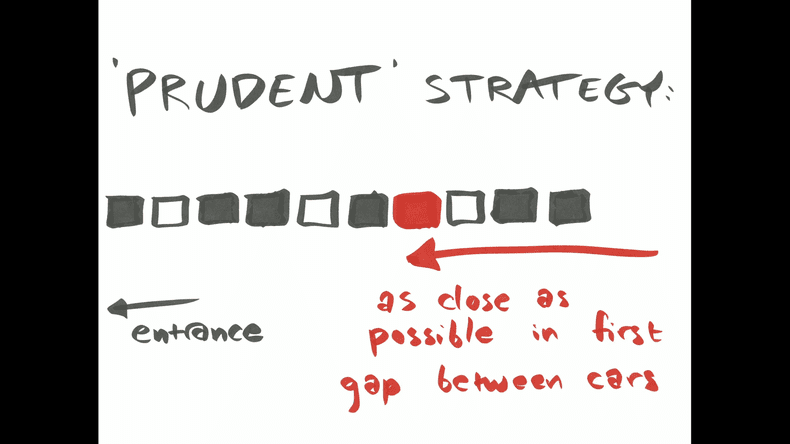 'PRUDENT' STRATEGY:
entrance
as close as
possible in first
gap between cars